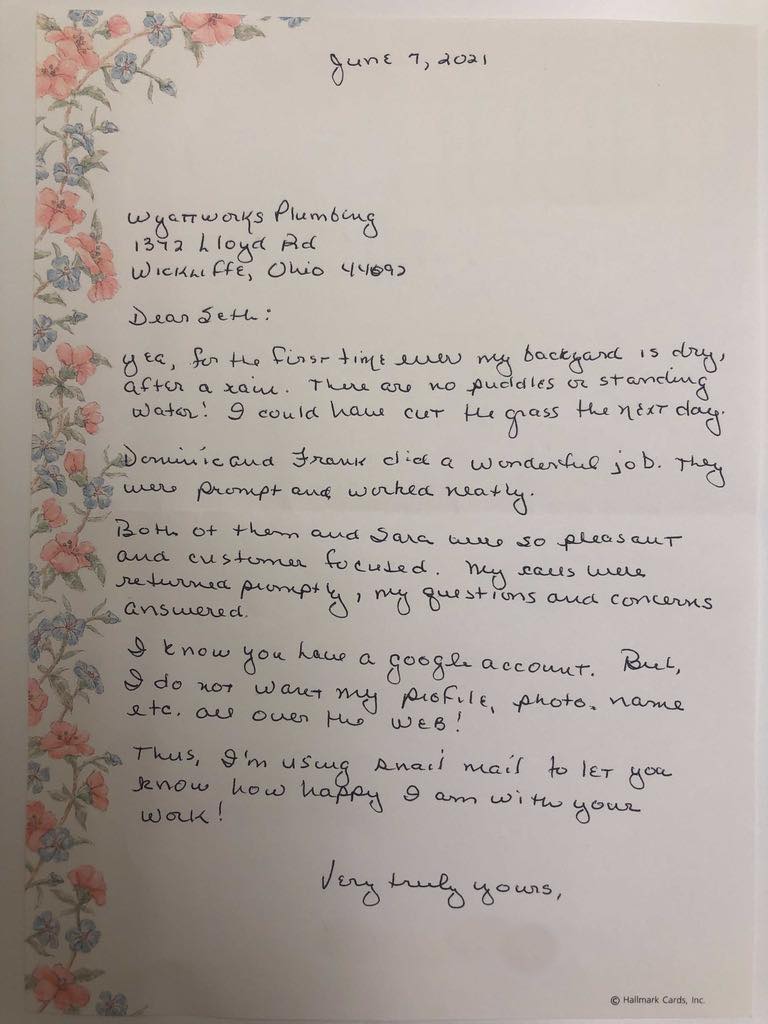 June 7, 2021
Wyattworks Plumbing
1372 Lloyd Rd
Wickliffe, Ohio 44092
Dear Seth:
Yea, for the first time ever my backyard is dry,
after a rain. There are no puddles or standing
water! I could have cut the grass the next day.
Dominic and Frank did a wonderful job. They
were prompt and worked neatly.
Both of them and Sara were so pleasant
and customer focused. My calls were
returned promptly, my questions and concerns
answered.
I know you have a google account. But,
I do not want my profile, photo, name
etc. all over the WEB!
Thus, I'm using snail mail to let you
know how happy I am with your
work!
Very truly yours,
© Hallmark Cards, Inc.